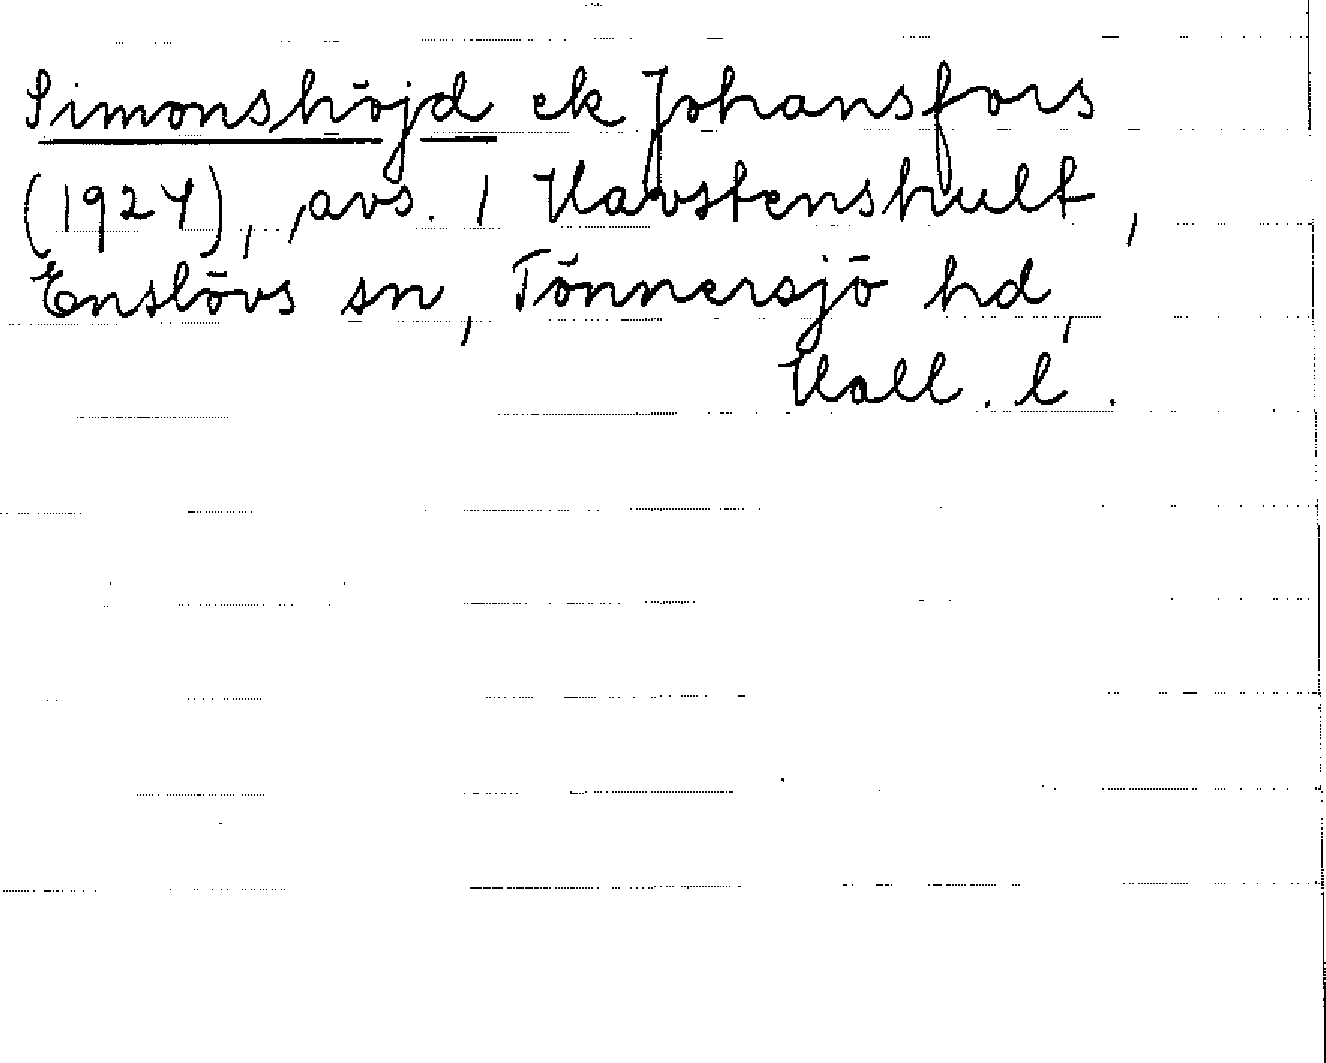 Simonshöjd ek Johansfors
(1924), avs. / Havstenshult,
Enslövs sn, Tönnersjö hd,
Hall. l.